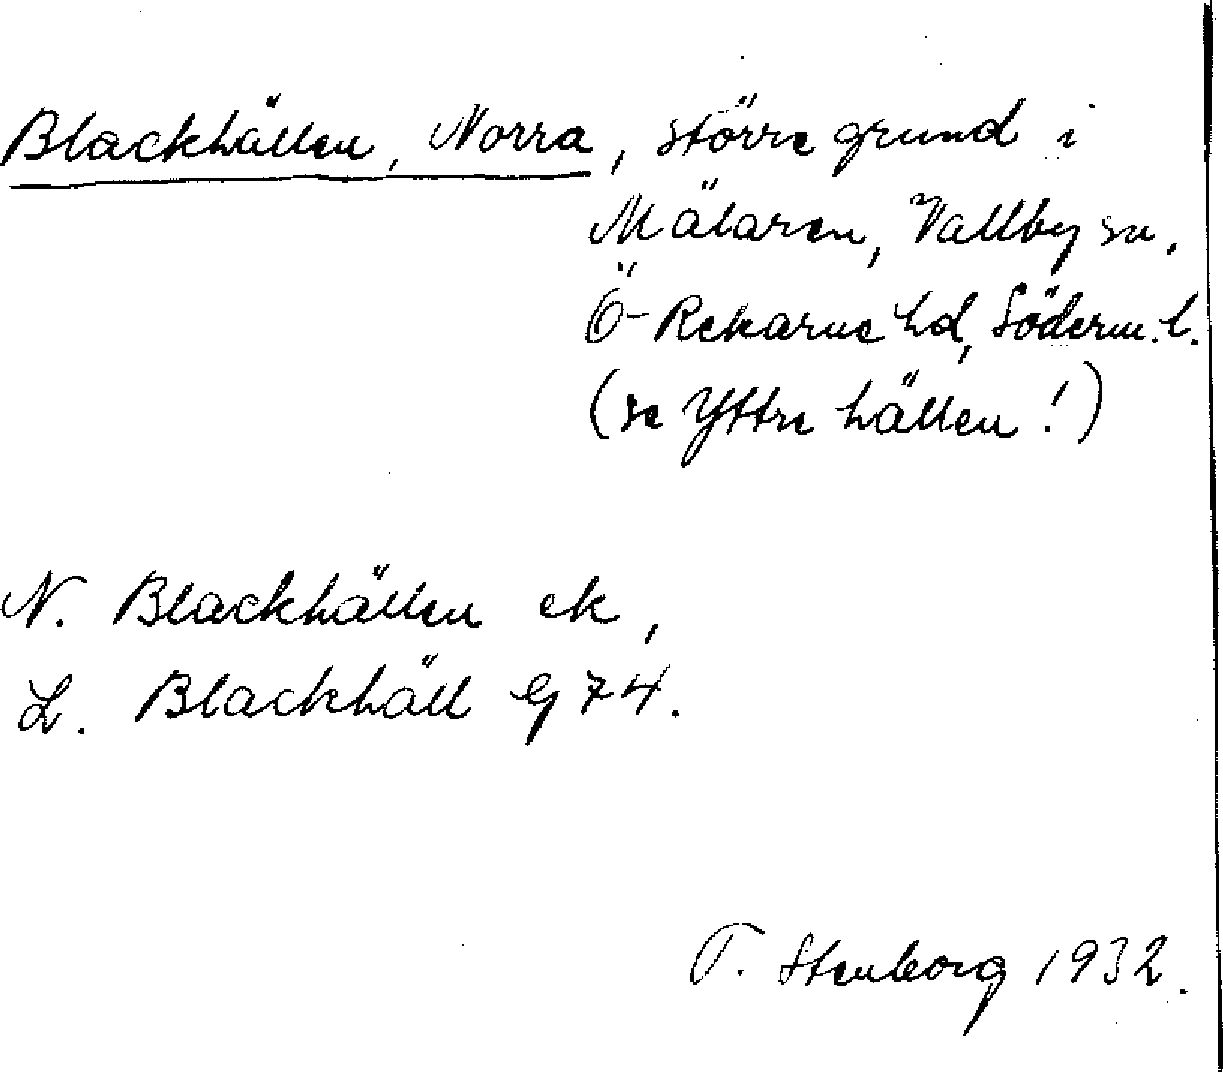 Blackhällen, Norra, större grund i
Mälaren, Vallby sn.
Ö-Rekarne hd, Söderm. l.
(se Yttre hällen!)
N. Blackhällen ek,
L. Blackhäll Gg 74.
T. Stenborg 1932.